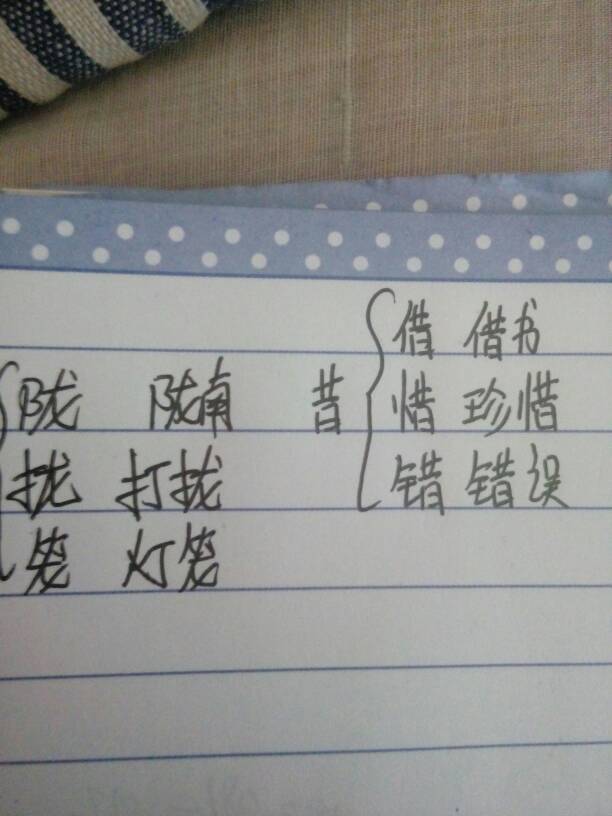 借 借书
陇 陇南 昔 惜 珍惜
拢 打拢 错 错误
笼 灯笼